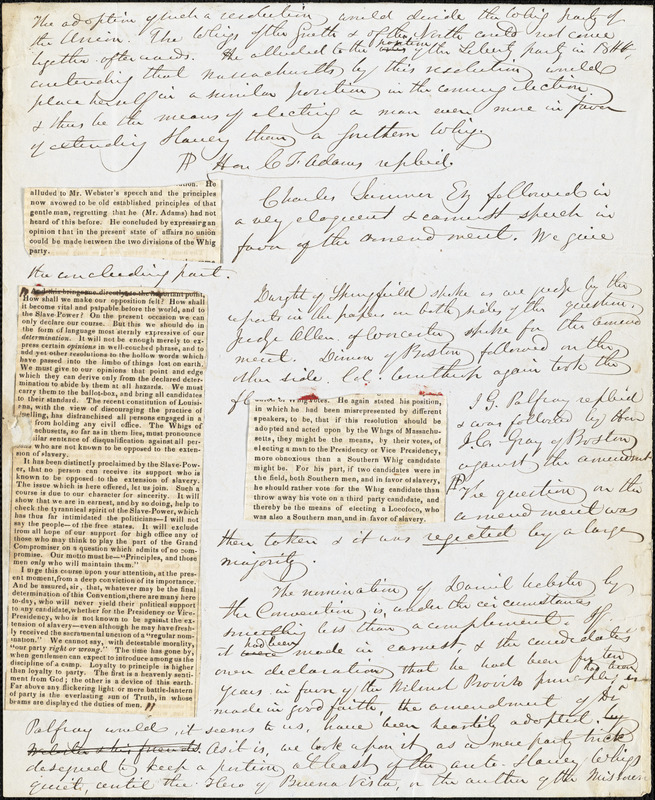 The adoption of such a resolution would decide the Whig party of
the Union. The Whigs of the South & of the North could not come
together afterwards. He alluded to the position of the Liberty party in 1844,
contending that Massachusetts by this resolution would
place herself in a similar position in the coming election
& thus be the means of electing a man even more in favor
of extending Slavery than a Southern Whig.
Hon C F Adams replied.
He
alluded to Mr. Webster's speech and the principles
now avowed to be old established principles of that
gentleman, regretting that he (Mr. Adams) had not
heard of this before. He concluded by expressing an
opinion that in the present state of affairs no union
could be made between the two divisions of the Whig
party.
Charles Sumner Esq followed in
a very eloquent & earnest speech in
favor of the amendment. We give
the concluding part.
"And this brings me directly to the important point,
How shall we make our opposition felt? How shall
it become vital and palpable before the world, and to
the Slave-Power? On the present occasion we can
only declare our course. But this we should do in
the form of language most sternly expressive of our
determination. It will not be enough merely to ex-
press certain opinions in well-couched phrase, and to
add yet other resolutions to the hollow words which
have passed into the limbo of things lost on earth.
We must give to our opinions that point and edge
which they can derive only from the declared determi-
nation to abide by them at all hazards. We must
carry them to the ballot-box, and bring all candidates
to their standard. The recent constitution of Louisi-
ana, with the view of discouraging the practice of
duelling, has disfranchised all persons engaged in a
from holding any civil office. The Whigs of
sachusetts, so far as in them lies, must pronounce
ilar sentence of disqualification against all per-
who are not known to be opposed to the exten-
sion of slavery.
It has been distinctly proclaimed by the Slave-Pow-
er, that no person can receive its support who is
known to be opposed to the extension of slavery.
The issue which is here offered, let us join. Such a
course is due to our character for sincerity. It will
show that we are in earnest, and by so doing, help to
check the tyrannical spirit of the Slave-Power, which
has thus far intimidated the politicians—I will not
say the people—of the free states. It will exclude
from all hope of our support for high office any of
those who may think to play the part of the Grand
Compromiser on a question which admits of no com-
promise. Our motto must be—"Principles, and those
men only who will maintain them."
I urge this course upon your attention, at the pres-
ent moment, from a deep conviction of its importance.
And be assured, sir, that, whatever may be the final
determination of this Convention, there are many here
to-day, who will never yield their political support
to any candidate, whether for the Presidency or Vice-
Presidency, who is not known to be against the ex-
tension of slavery—even although he may have fresh-
ly received the sacramental unction of a "regular nom-
ination." We cannot say, with detestable morality,
"our party right or wrong." The time has gone by,
when gentlemen can expect to introduce among us the
discipline of a camp. Loyalty to principle is higher
than loyalty to party. The first is a heavenly senti-
ment from God; the other is a device of this earth.
Far above any flickering light or mere battle-lantern
of party is the everlasting sun of Truth, in whose
beams are displayed the duties of men."
Dwight of Springfield spoke as we judge by the
reports in the papers on both sides of the question.
Judge Allen of Worcester spoke on the amend
ment. of Boston followed on the
other side. Col. again took the
fl
He again stated his position,
in which he had been misrepresented by different
speakers, to be, that if this resolution should be
adopted and acted upon by the Whigs of Massachu-
setts, they might be the means, by their votes, of
electing a man to the Presidency or Vice Presidency,
more obnoxious than a Southern Whig candidate
might be. For his part, if two candidates were in
the field, both Southern men, and in favor of slavery,
he should rather vote for the Whig candidate than
throw away his vote on a third party candidate, and
thereby be the means of electing a Locofoco, who
was also a Southern man, and in favor of slavery.
J G Palfrey replied
& was followed by Hon
J. C. Gray of Boston
against the amendment
The question on the
amendment was
then taken & it was rejected by a large
majority.
The nomination of Daniel Webster by
the Convention is, under the circumstances
something less than a complement. If
it had been made in earnest & the candidates
own declaration that he had been for ten
years in favor of the Wilmot Proviso principle, had been
made in good faith, the amendment of Dr
Palfrey would, it seems to us, have been heartily adopted. by
Webster & his friends. As it is, we look upon it, as a mere party trick
designed to keep a portion at least of the anti-Slavery Whigs
quiet, until the Hero of Buena Vista, or the author of the Missouri